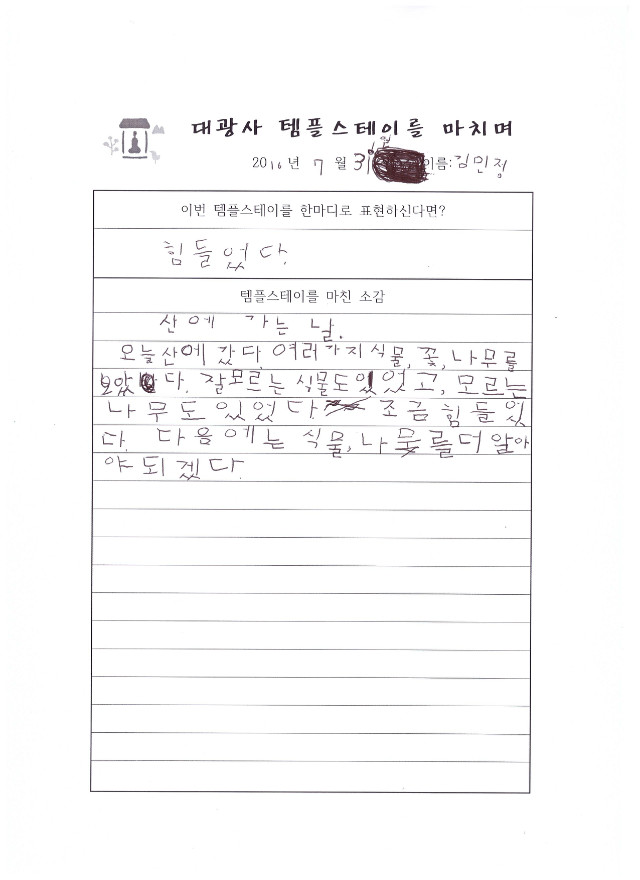 대광사 템플스테이를 마치며
2016년 7월 31일 이름:김민정
이번 템플스테이를 한마디로 표현하신다면?
힘들었다.
템플스테이를 마친 소감
산에 가는 날.
오늘산에 갔다. 여러가지 식물, 꽃, 나무를
보았다. 잘모르는 식물도있었고, 모르는
나무도 있었다. 조금힘들었
다. 다음에는 식물, 나무를더 알아
야되겠다.